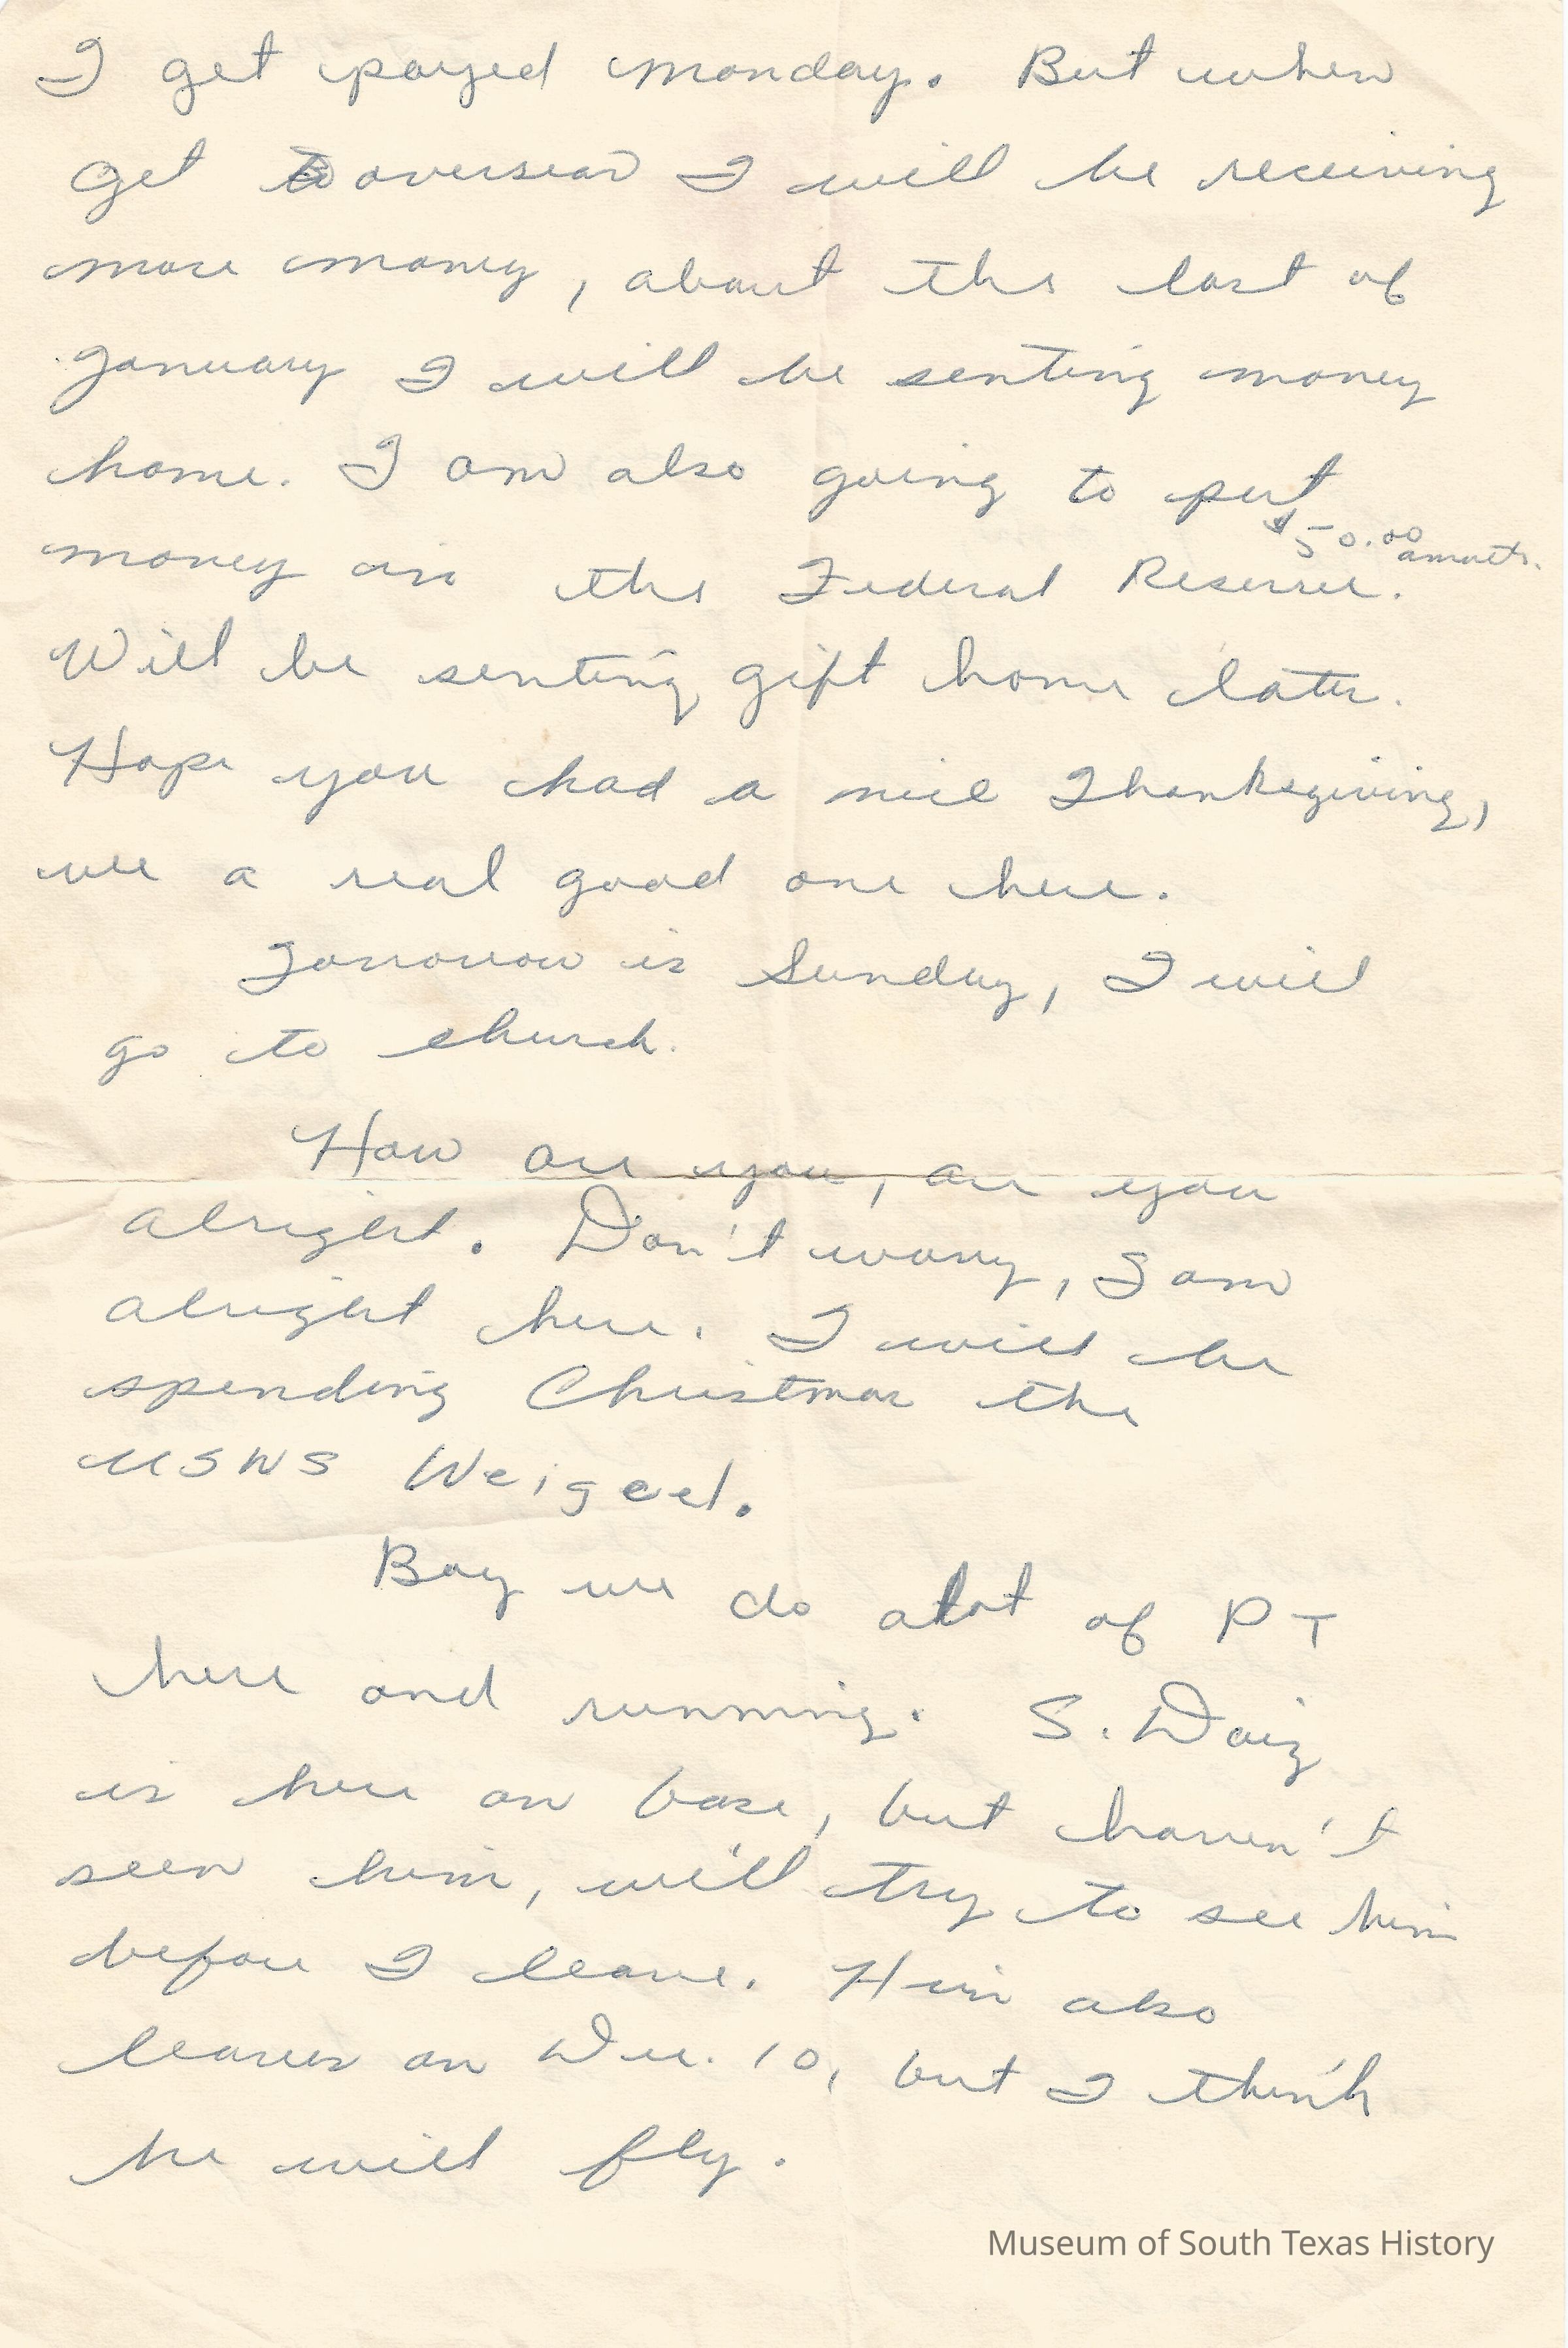 I get payed monday. But when
get to overseas I will be receiving
more money, about the last of
January I will be senting money
home. I am also going to put
$50.00 amonth.
money in the Federal Reserve.
Will be senting gift home later.
Hope you had a nice Thanksgiving,
we a real good one here.
Tomorrow is Sunday, I will
go to church.
How are you, are you
alright. Don't worry, I am
alright here. I will be
spending Christmas the
USNS Weigeel.
Boy we do alot of PT
here and running. S. Daiz
is here on base, but haven't
seen him, will try to see him
before I leave. Him also
leaves on Dec. 10, but I think
he will fly.
Museum of South Texas History